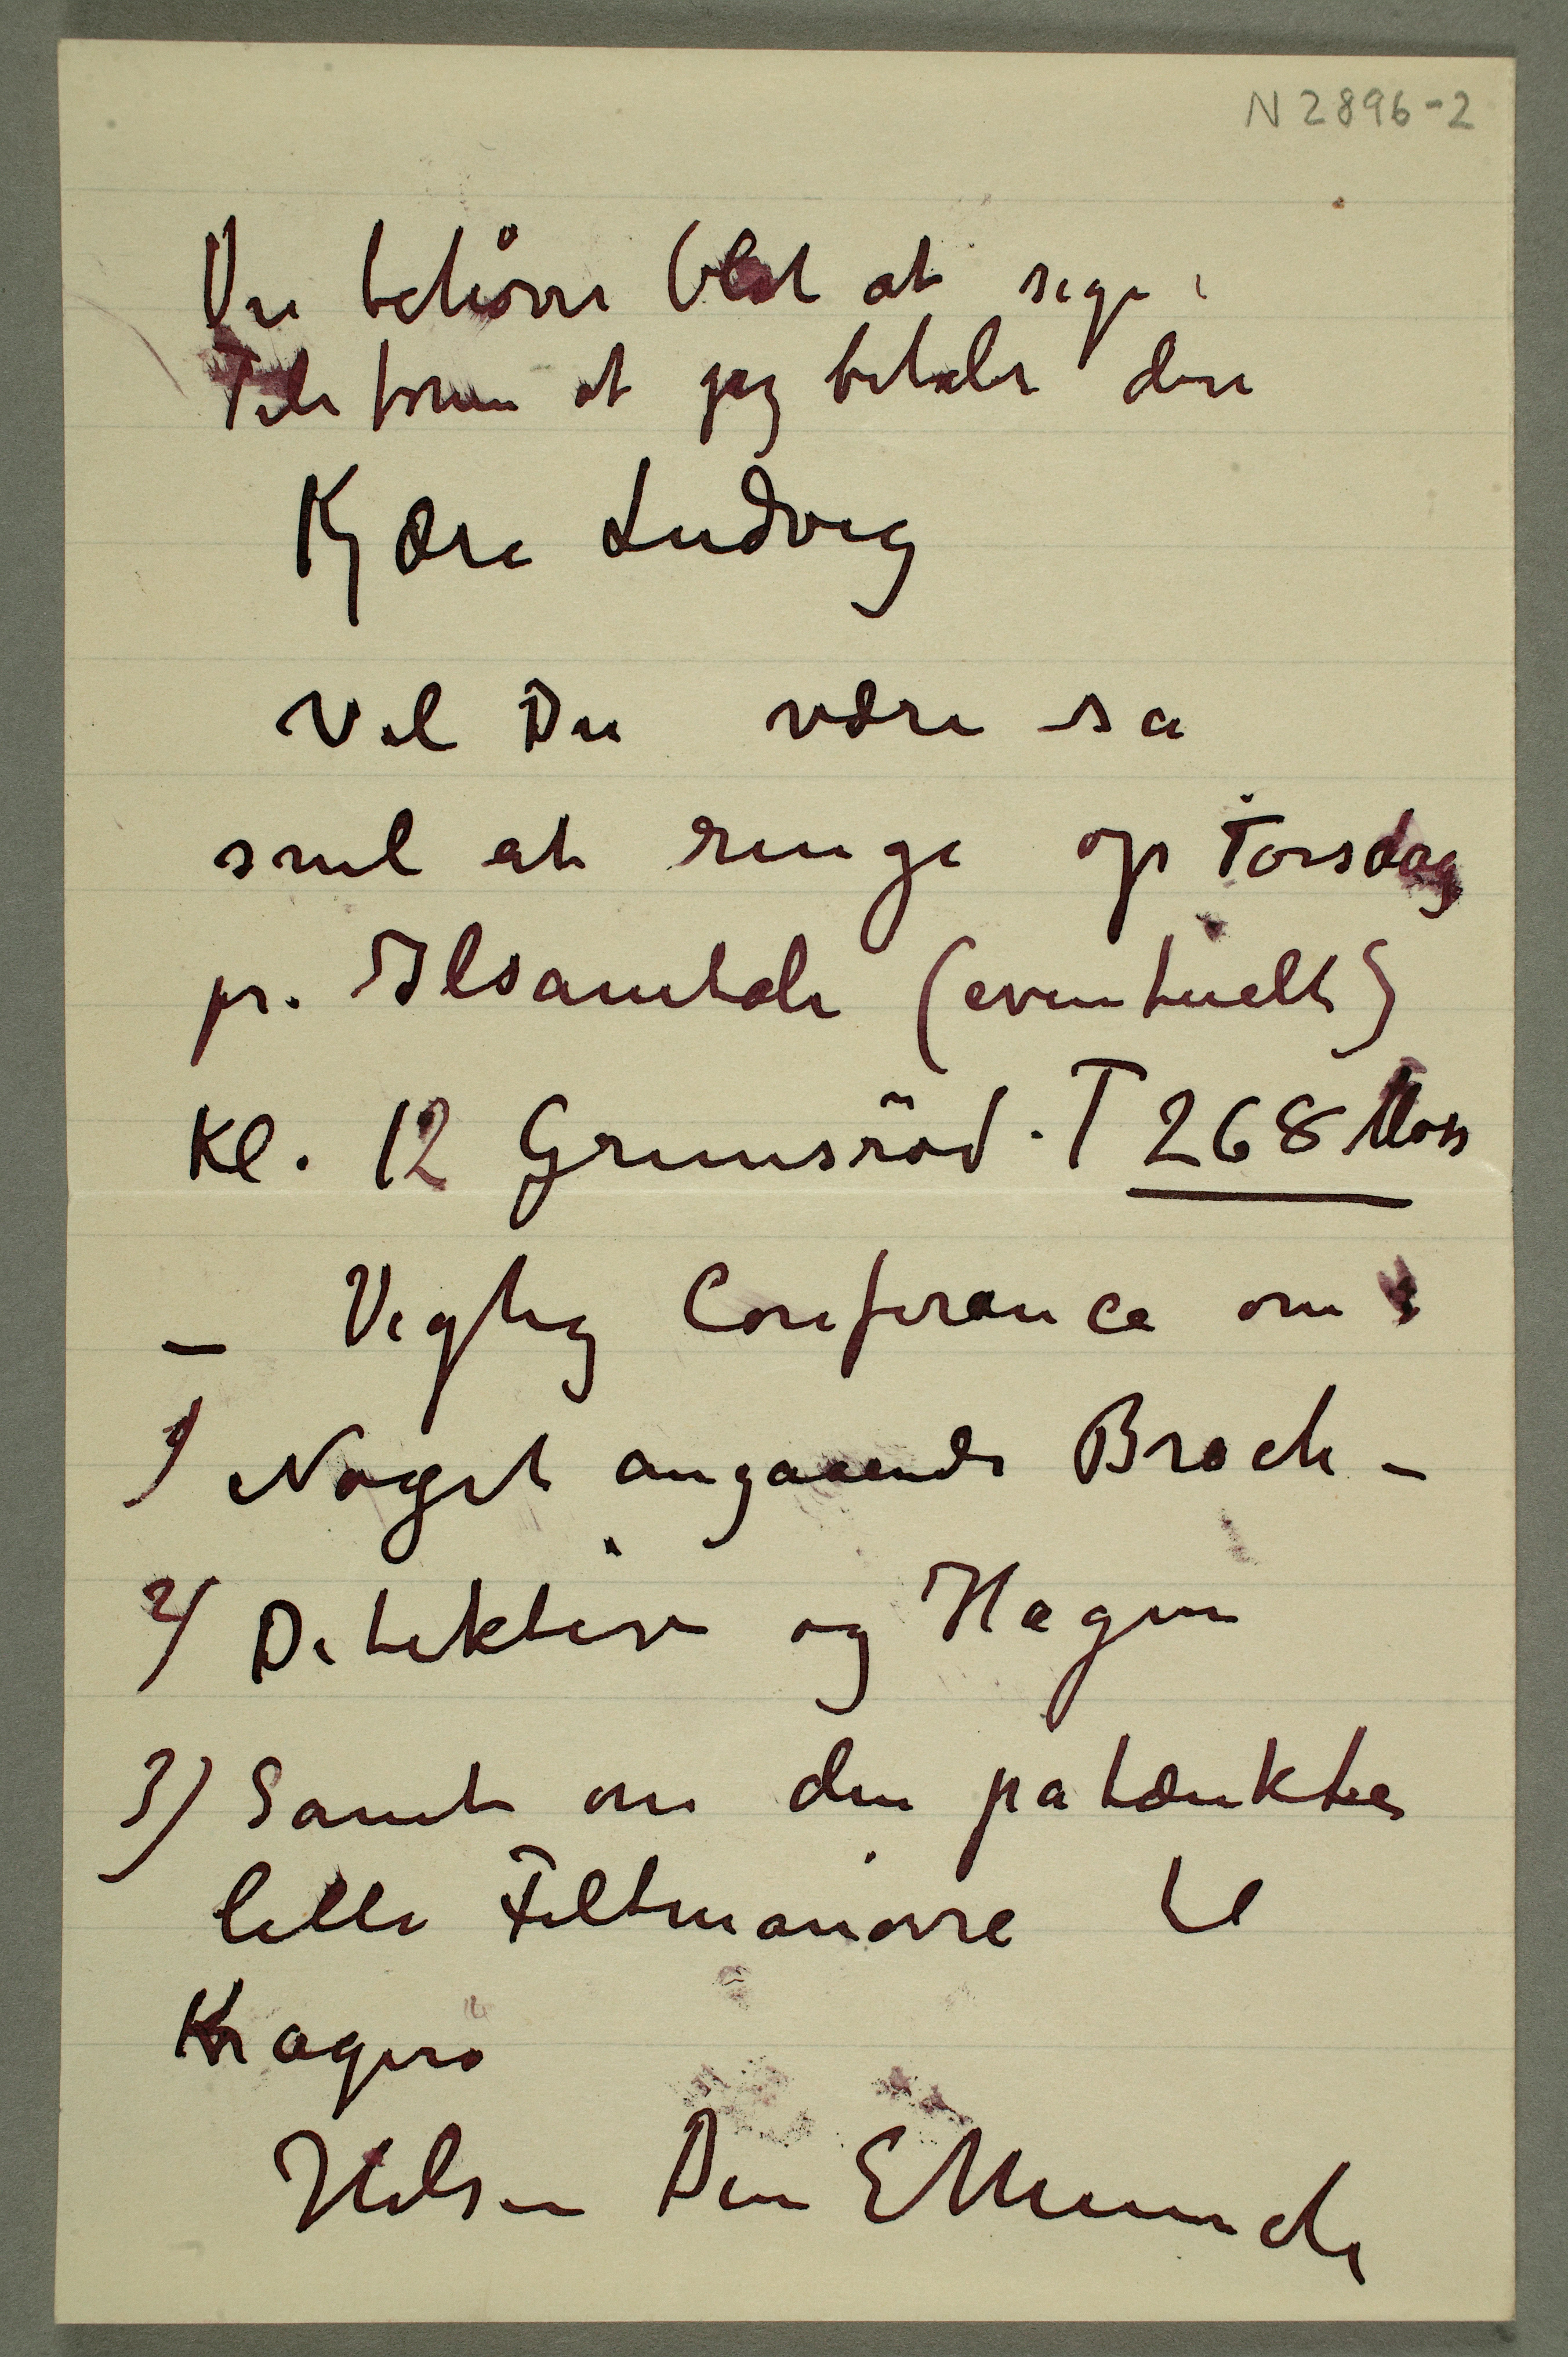 N 2896-2
Du behöver blot at sige i
Telefonen at jeg betaler den
Kjære Ludvig
Vil Du være sa
snil at ringe op Torsdag
pr. Ilsamtale (eventuelt)
Kl. 12 Grimsröd. T 268 Moss
– Vigtig Conferance om
1) Noget angaaende Broch –
2) Detektiv og Hagen
3) Samt om den patænkte
lille Feltmanovre til
Kragerø
Hilsen Din E Munch